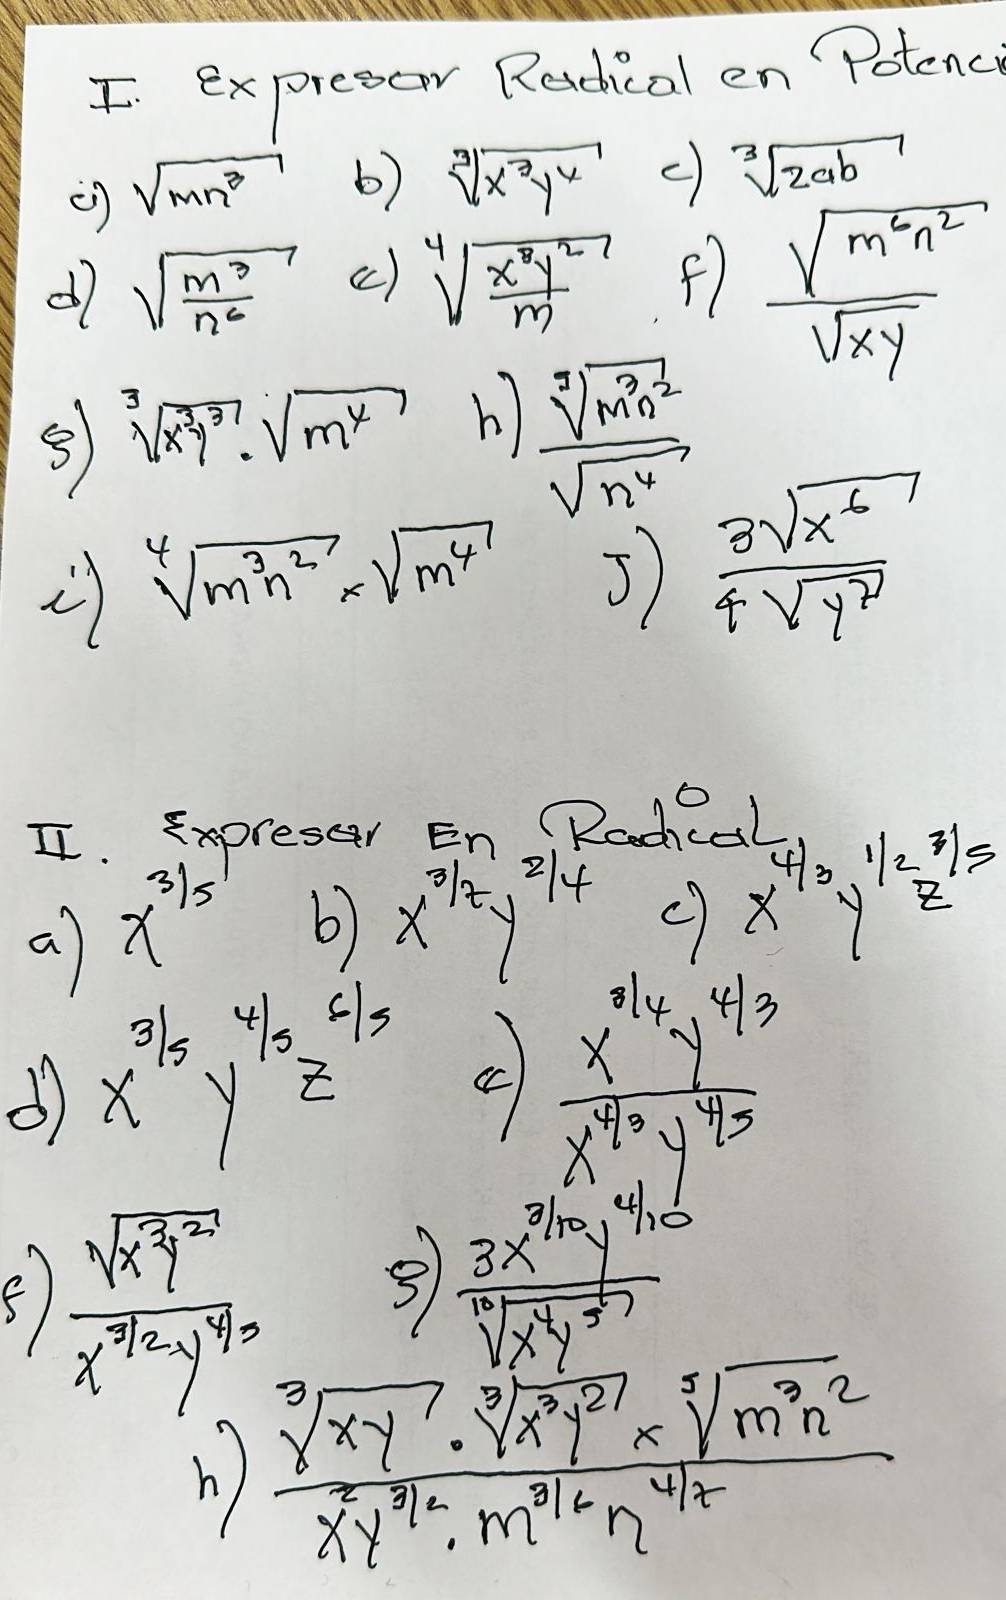 I. Expresar Radical en Potenci
a) √(mn³) b) ∛(x³y⁴) c) ∛(2ab)
d) √(m³/n⁶) e) ∜(x⁸y²/m) f) √(m⁶n²)/√(xy)
g) ∛(x³y³) · √(m⁴) h) ⁵√(m³n²)/√(n⁴)
i) ∜(m³n²) × √(m⁴) J) 3√(x⁶)/4√(y⁷)
II. Expresar En Radical
a) x^3/5 b) x^3/7 y^2/4 c) x^4/3 y^1/2 z^3/5
d) x^3/5 y^4/5 z^6/5 e) x^3/4 y^4/3 / x^4/3 y^4/5
f) √(x³y²) / x^3/2 y^4/5 g) 3x^3/10 y^4/10 / ¹⁰√(x⁴y⁵)
h) ∛(xy) · ∛(x³y²) × ⁵√(m³n²) / x²y^3/2 · m^3/6 n^4/7